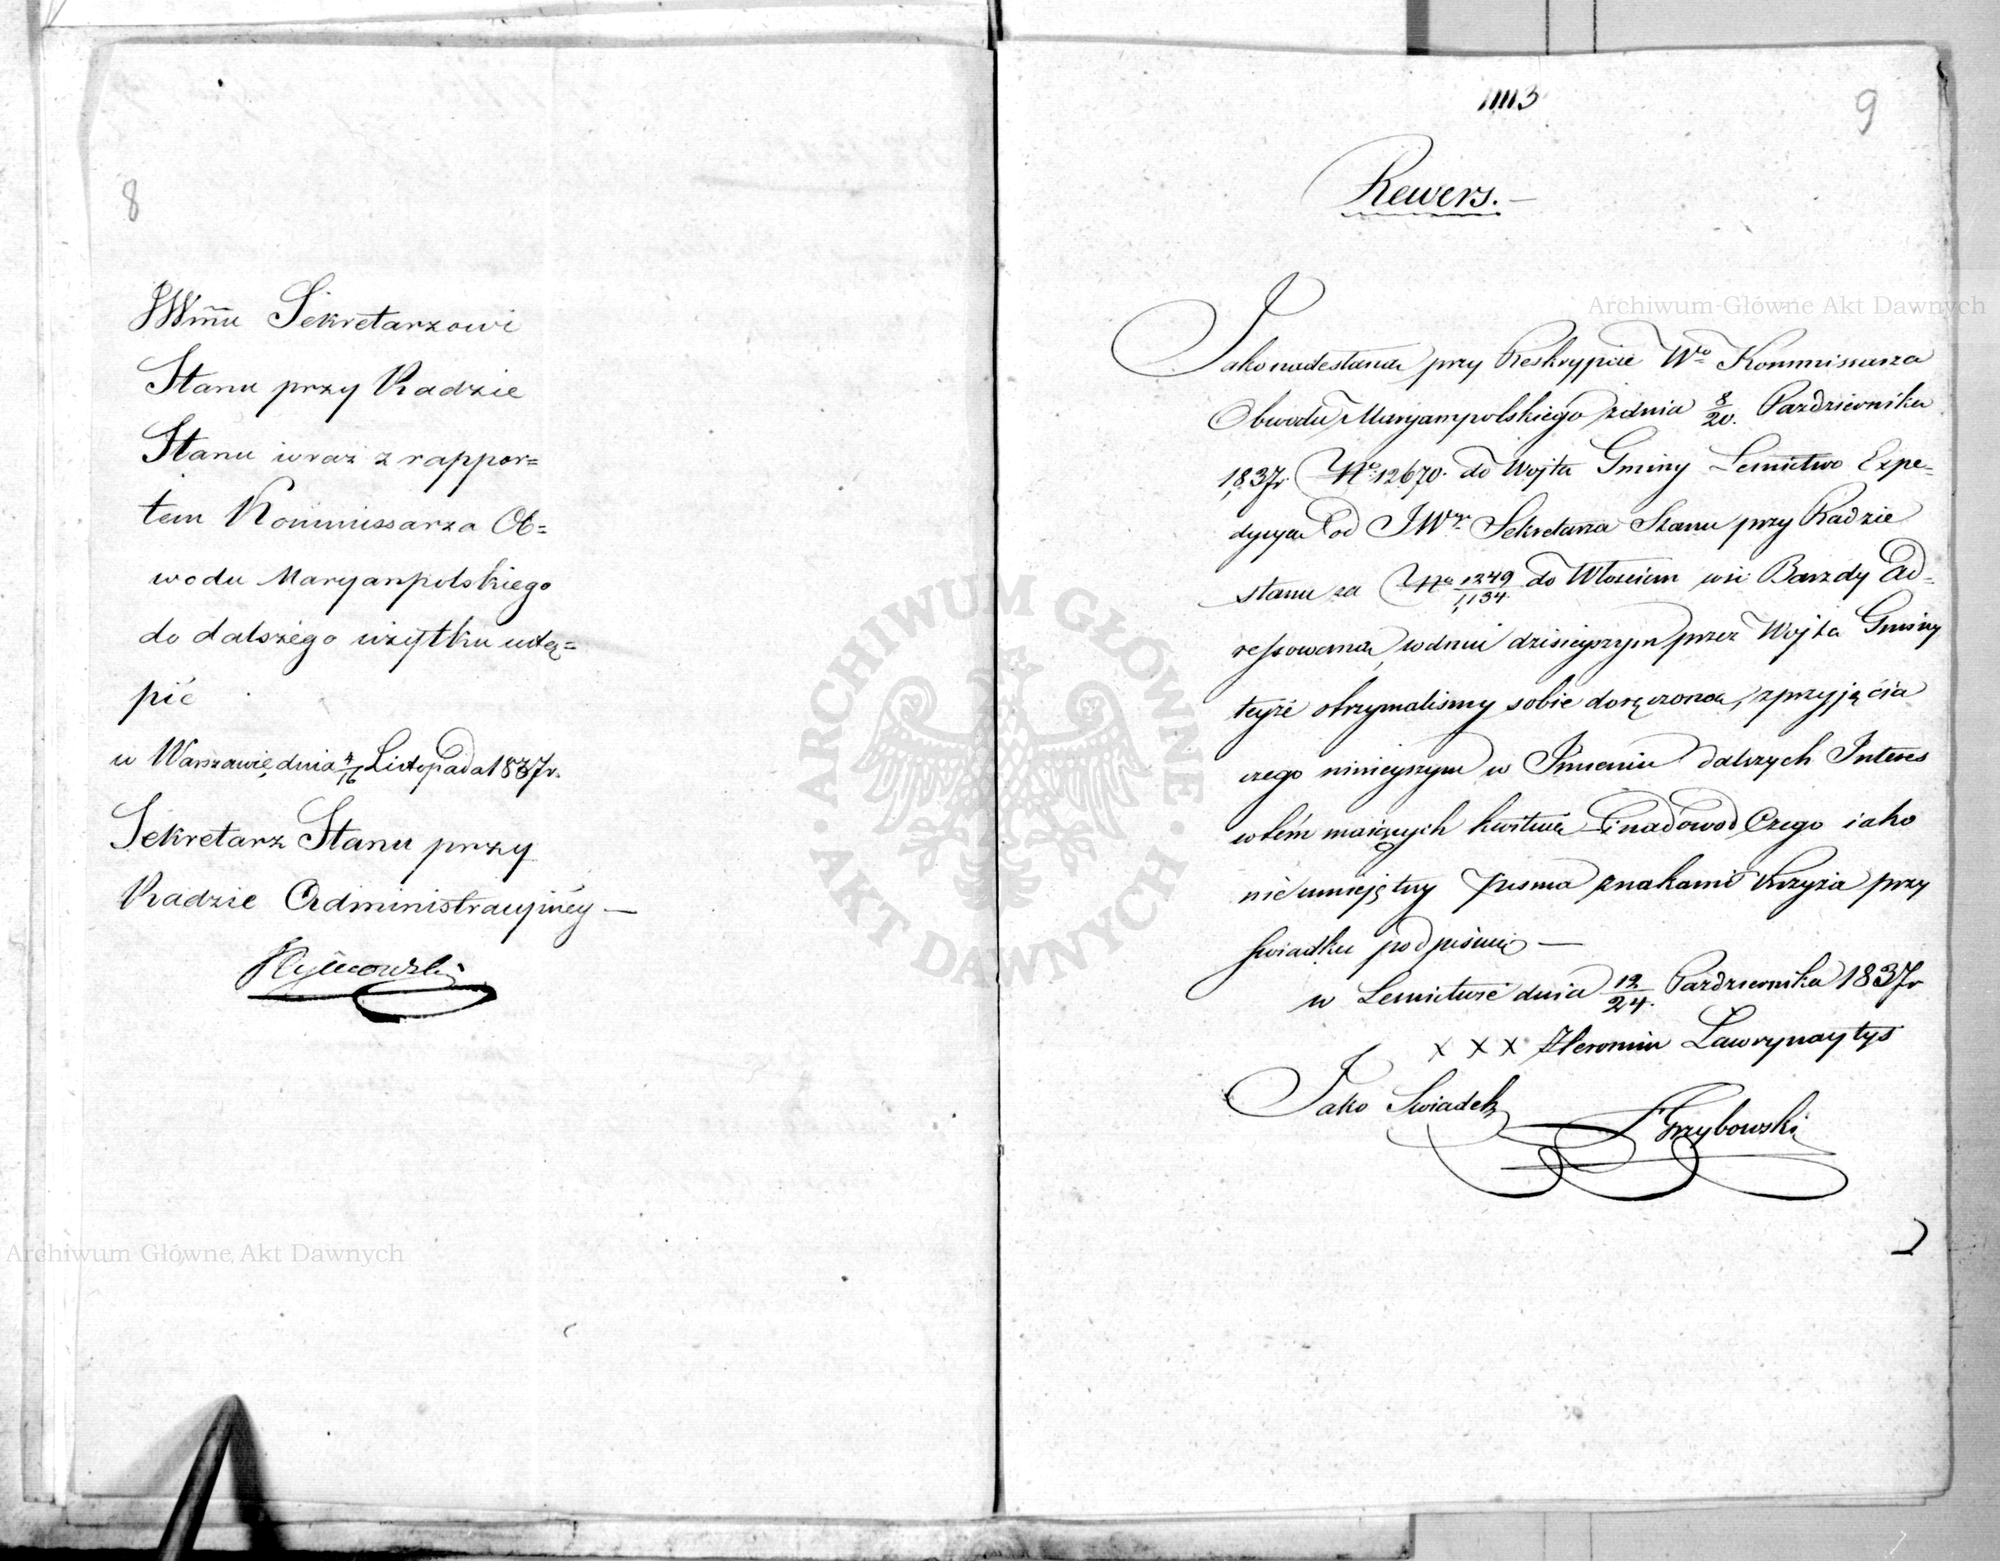 8
JWmu Sekretarzowi
Stanu przy Radzie
Stanu wraz z rappor=
tem Kommissarza Ob=
wodu Maryampolskiego
do dalszego użytku udzie=
pić
w Warszawie, dnia 4/16 Listopada 1837 r.
Sekretarz Stanu przy
Radzie Administracyjnéy —
1113
9
Rewers. —
Jako nadesłana przy Reskrypcie Wo Kommissarza
Obwodu Maryampolskiego z dnia 8/20. Października
1837r No 12670. do Wójta Gminy Leśnictwo Expe=
dycya od JWo Sekretarza Stanu przy Radzie
stanu za No 1249/1134 do Włościan wsi Barzdy Ad=
ressowana, w dniu dzisieyszym przez Wójta Gminy
teyże otrzymaliśmy sobie doręczona, z przyjęcia
czego ninieyszym w Imieniu dalszych Interes
w tém maiących kwituię i na dowod Czego iako
nie umiejętny pisma znakami krzyża przy
świadku podpisuię —
w Leśnictwie dnia 12/24. Października 1837r
x x x Heronim Lawrynaytys
Jako Swiadek Grzybowski
Archiwum Główne Akt Dawnych
Archiwum Główne Akt Dawnych
ARCHIWUM GŁÓWNE · AKT DAWNYCH ·